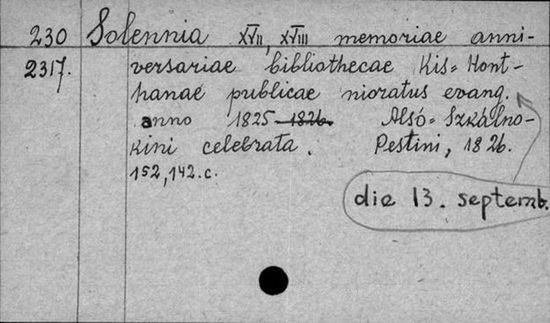 230 Solennia XVII, XVIII memoriae anni-
2317. versariae bibliothecae Kis=Hont-
hanae publicae nioratus evang.
anno 1825-1826. Alsó=Szkálno-
kini celebrata. Pestini, 1826.
152,142.c.
die 13. septemb.